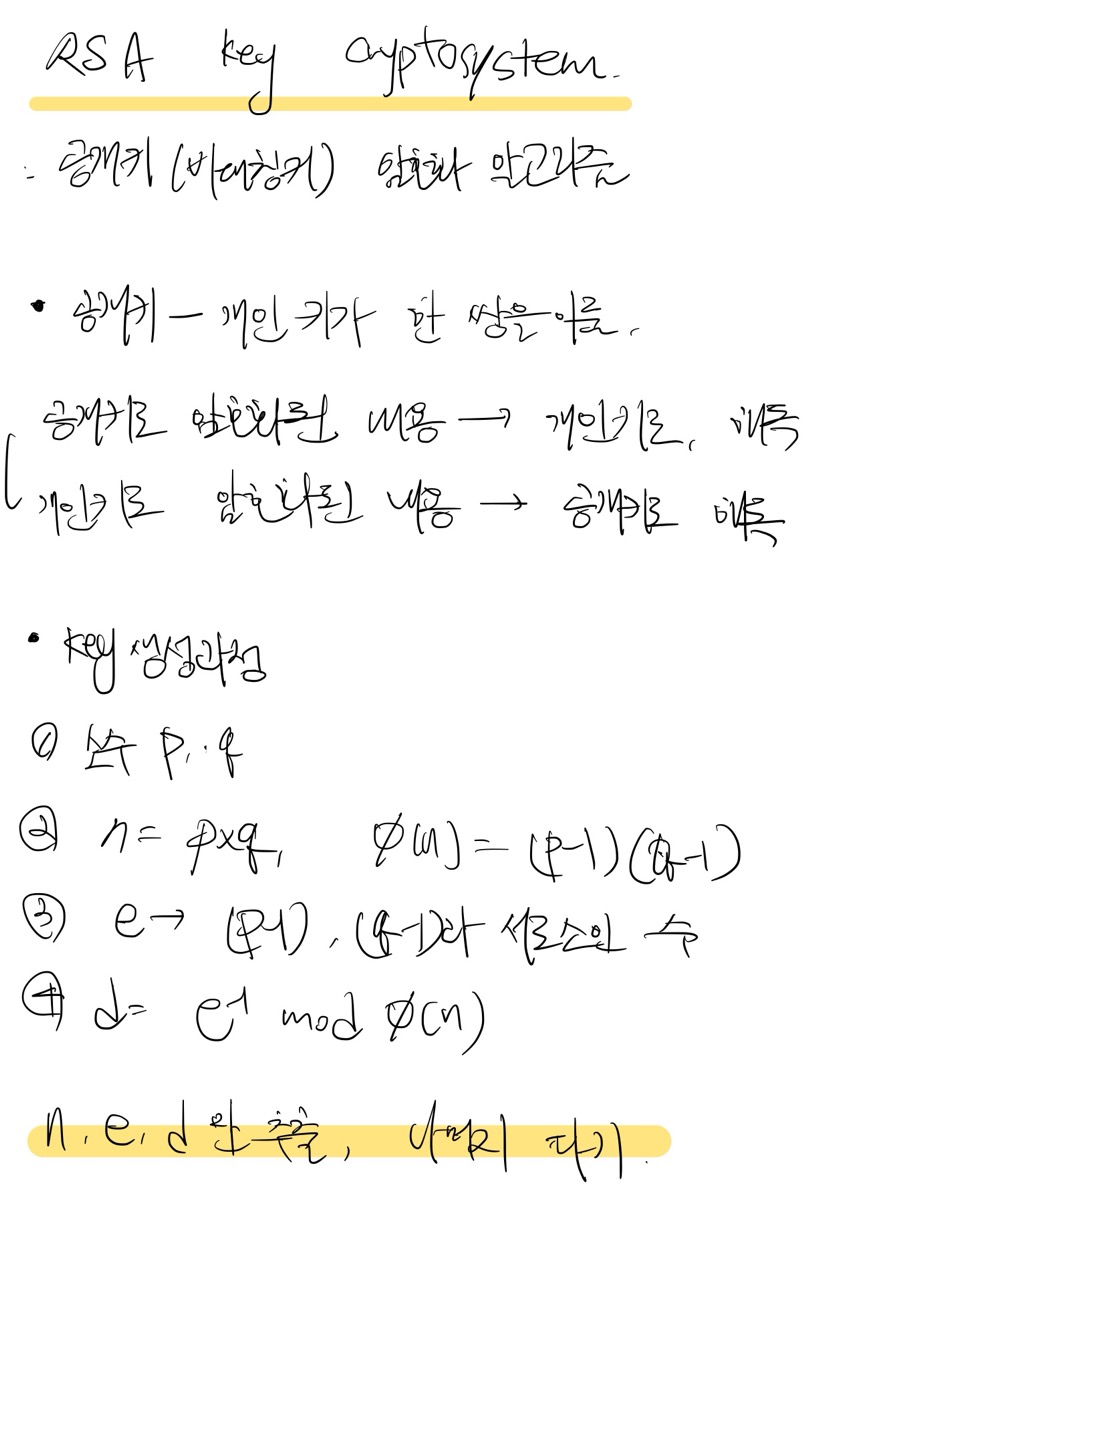 RSA key cryptosystem.
: 공개키 (비대칭키) 암호화 알고리즘
• 공개키 - 개인키가 한 쌍을 이룸.
공개키로 암호화된 내용 → 개인키로, 해독
개인키로 암호화된 내용 → 공개키로 해독
• key 생성과정
① 소수 p, q
② n = p×q, ø(n) = (p-1)(q-1)
③ e → (p-1), (q-1)과 서로소인 수
④ d = e⁻¹ mod ø(n)
n, e, d만 추출, 나머지 파기.